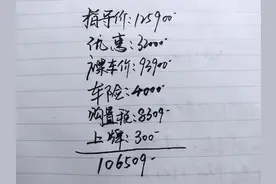 指导价:125900-
优惠:32000-
裸车价:93900-
车险:4000-
购置税:8309-
上牌:300-
106509-